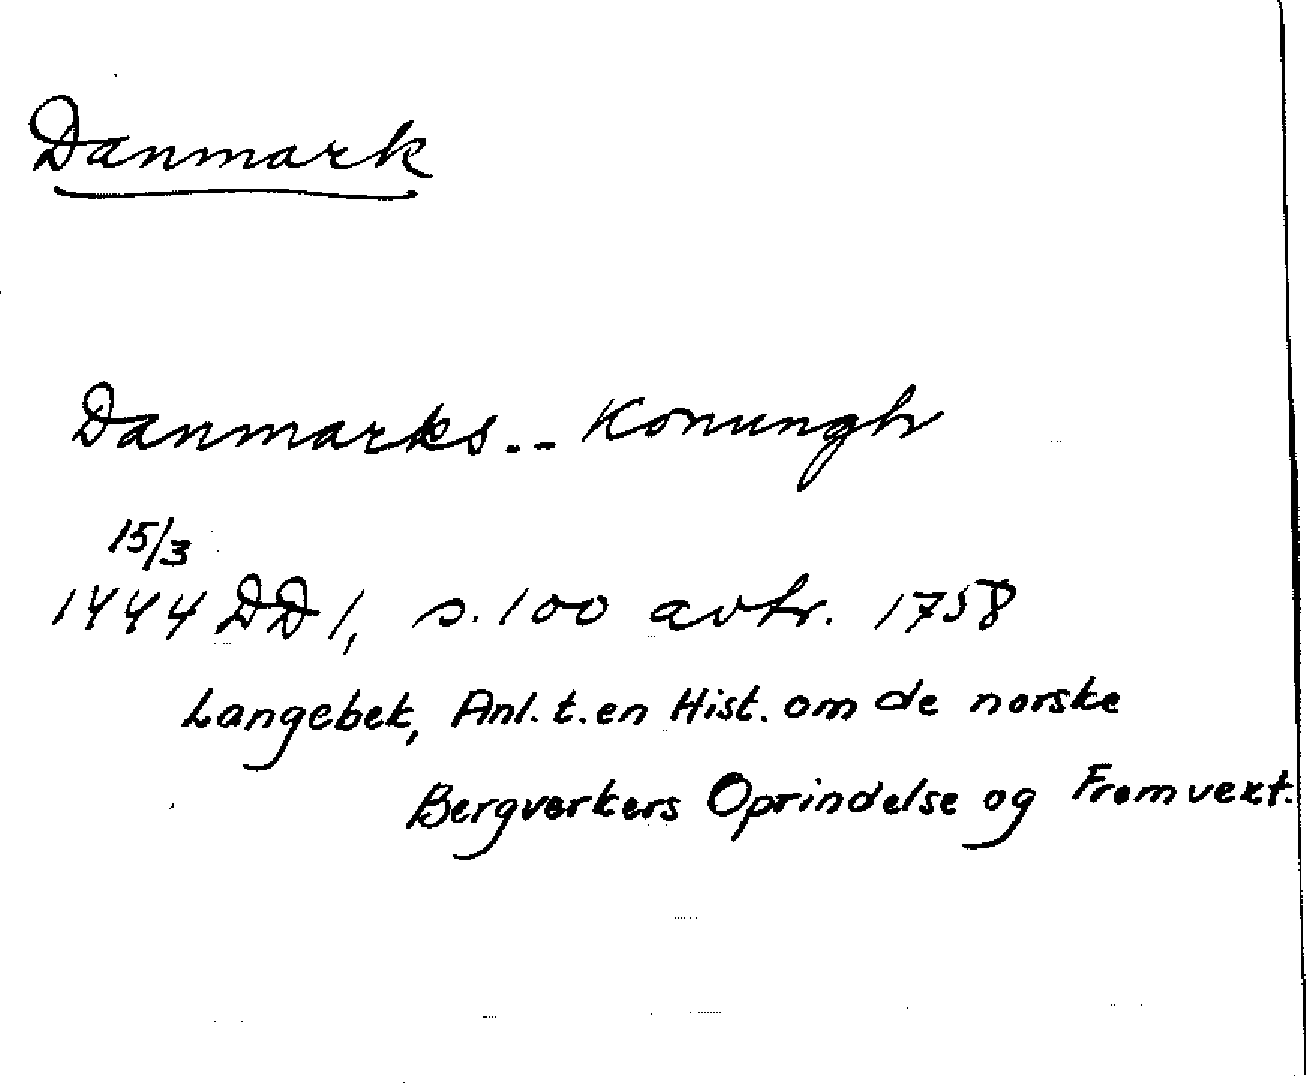 Danmark
Danmarks.. Konungh
15/3
1444 DD 1, s. 100 avtr. 1758
Langebek, Anl. t. en Hist. om de norske
Bergverkers Oprindelse og Fremvext.